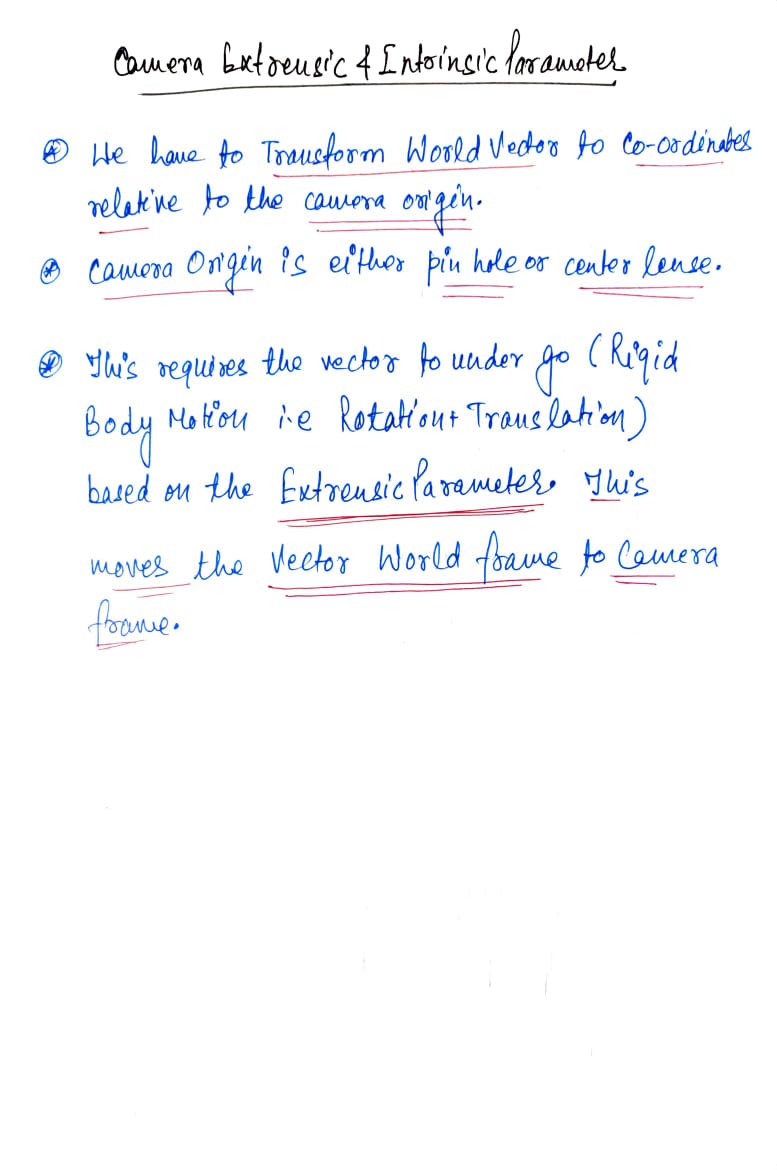 Camera Extrensic & Intrinsic Parameter
We have to Transform World Vector to Co-ordinates
relative to the camera origin.
Camera Origin is either pin hole or center lense.
This requires the vector to under go (Rigid
Body Motion i.e Rotation + Translation)
based on the Extrensic Parameter. This
moves the Vector World frame to Camera
frame.